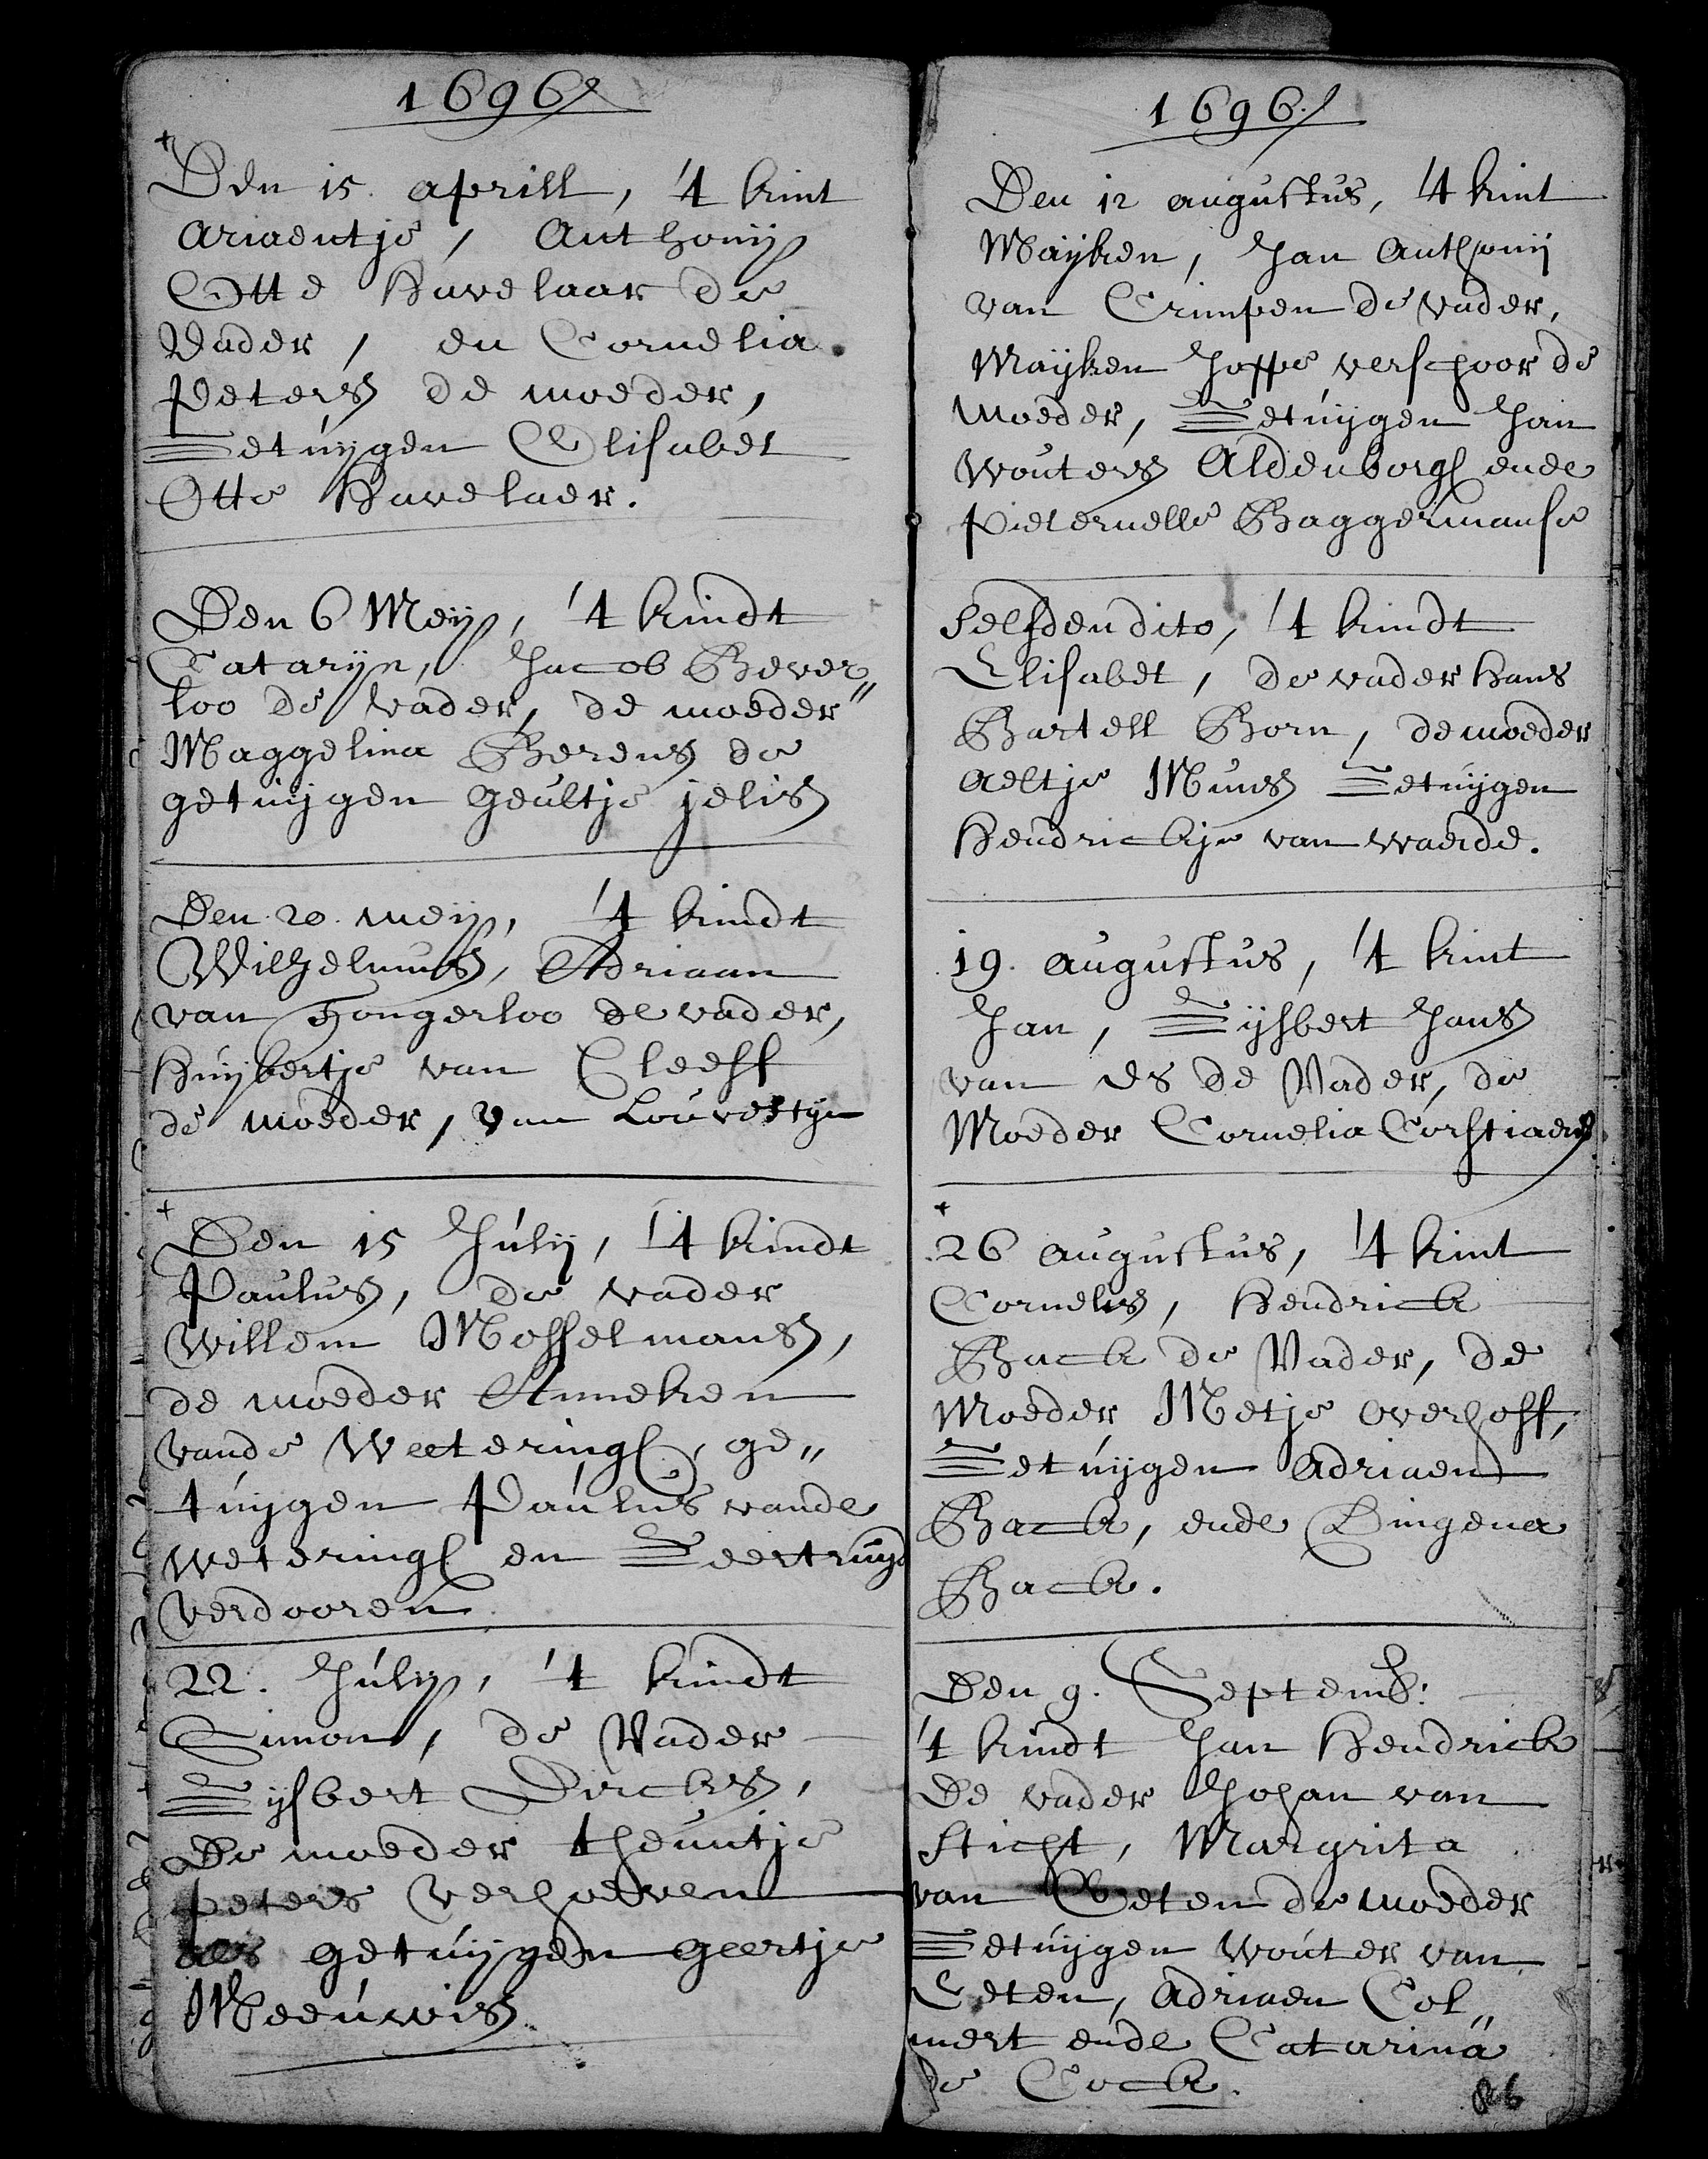 1696
+
Den 15. aprill, 't kint
Ariaentje, Anthonij
Otte Havelaar de
Vader, en Cornelia
Peters de moeder,
Getúijgen Elisabet
Otte Havelaer.
Den 6 Meij, 't kindt
Catarijn, Jacob Bever„
loo de vader, de moeder
Maggelina Berens de
getuijgen geultje jelis
Den 20. meij, 't kindt
Wilhelmus, Adriaan
van Hongerloo de vader,
Huijbertje van Cleeff
de moeder, van Louvestijn
+
Den 15 Júlij, 't kindt
Paulus, de vader
Willem Mosselmans,
de moeder Anneken
vande Weeteringh, ge„
túijgen Paúlus vande
weteringh en Geertruijd
verdooren
22. Júlij, 't kindt
Simon, de Vader
Gijsbert Dircks,
De moeder theuntje
peters verhoeven
als getúijgen geertje
Meeúwis.
1696
Den 12 augustus, 't kint
Maijken, Jan Anthonij
van Crimpen de vader,
Maijken Joppe verschoor de
moeder, Getúijgen Jan
Wouters Aldenborgh ende
Pieternelle Baggermanse
Selfden dito, 't kindt
Elisabet, de vader Hans
Bartell Born, de moeder
Aeltje Muns Getuijgen
Hendrickje van waerde.
19. augustus, 't kint
Jan, Gijsbert Jans
van Es de Vader, de
Moeder Cornelia Corstiaens
+
26 augustus, 't kint
Cornelis, Hendrick
Back de Vader, de
Moeder Metje overhoff,
Getúijgen Adriaen
Back, ende Dingena
Back.
Den 9. Septemb:
't kindt Jan Hendrick
De vader Johan van
Sticht, Margrita
van Eeten de moeder
Getúijgen Woúter van
Eeten, Adriaen Col„
mert ende Catarina
de Cock.
86